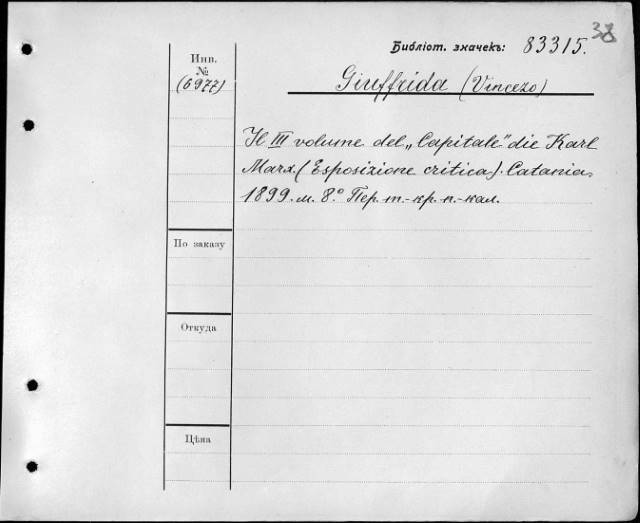 38
Библіот. значекъ: 83315.
Инв.
№
(6977)
Giuffrida (Vincezo)
Il III volume del „Capitale" die Karl
Marx (Esposizione critica). Catania,
1899. м. 8.° Пер. т.-кр. п.-кал.
По заказу
Откуда
Цѣна